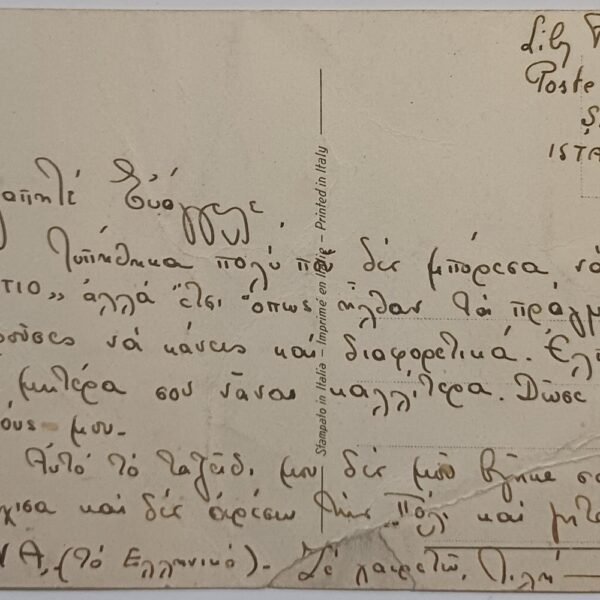 Lily
Poste
Ş
ISTA
απητέ Εὐάγγελε,
Λυπήθηκα πολύ πού δέν μπόρεσα νά
ΤΙΟ" ἀλλά ἔτσι ὅπως ἦλθαν τά πράγμ
ροῦσες νά κάνεις καί διαφορετικά. Ἐλπ
μητέρα σου νἆναι καλλίτερα. Δῶσε
ούς μου.
Αὐτό τό ταξεῖδι μου δέν μοῦ βγῆκε σέ
χισα καί δέν ἀρέσω τήν "πόλι καί μετά
Α, (τό Ἑλληνικό). Σέ χαιρετῶ, Λιλή
Stampato in Italia – Imprimé en Italie – Printed in Italy